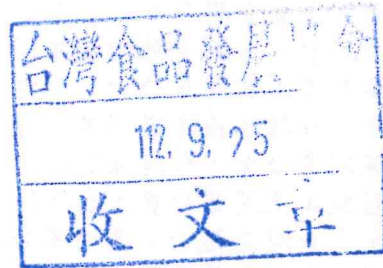 台灣食品發展
112. 9. 25
收文章